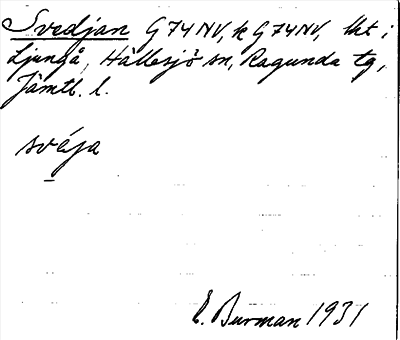 Svedjan G74NV, k G74NV, lht i
Ljungå, Hällesjö sn, Ragunda tg,
Jämtl. l.
svéja
E. Burman 1931